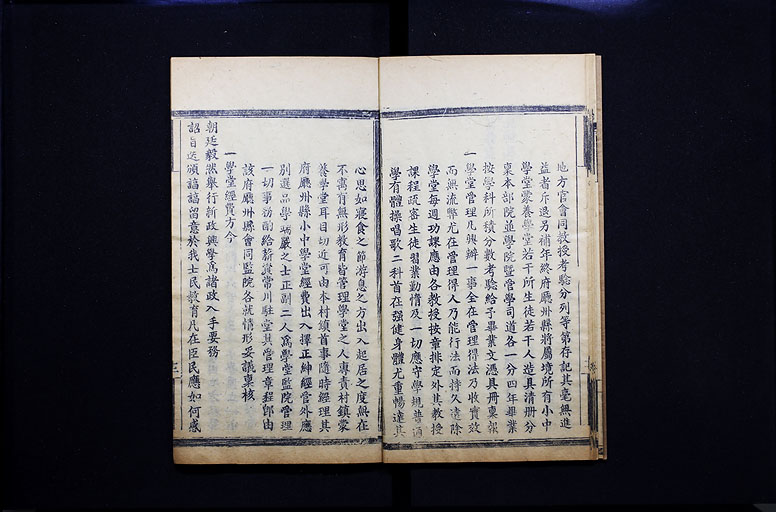 地方官會同教授考驗分列等第存記其毫無進
益者斥退另補年終府廳州縣將屬境所有小中
學堂蒙養學堂若干所生徒若干人造具清册分
稟本部院並學院暨管學司道各一分四年畢業
按學科所積分數考驗給予畢業文憑具册稟報
一學堂管理凡興辦一事全在管理得法乃收實效
而無流弊尤在管理得人乃能行法而持久遠除
學堂每週功課應由各教授按章排定外其教授
課程疏密生徒習業勤惰及一切應守學規普通
學有體操唱歌二科首在强健身體尤重暢達其
心思如寢食之節游息之方出入起居之度無在
不寓有無形教育皆管理學堂之人專責村鎮蒙
養學堂耳目切近可由本村鎮首事隨時經理其
府廳州縣小中學堂經費出入擇正紳經管外應
別選品學端嚴之士正副二人爲學堂監院管理
一切事務酌給薪貲常川駐堂其管理章程卽由
該府廳州縣會同監院各就情形妥議稟核
一學堂經費方今
朝廷毅然舉行新政興學爲諸政入手要務
詔旨迭頒諄諄留意於我士民教育凡在臣民應如何感